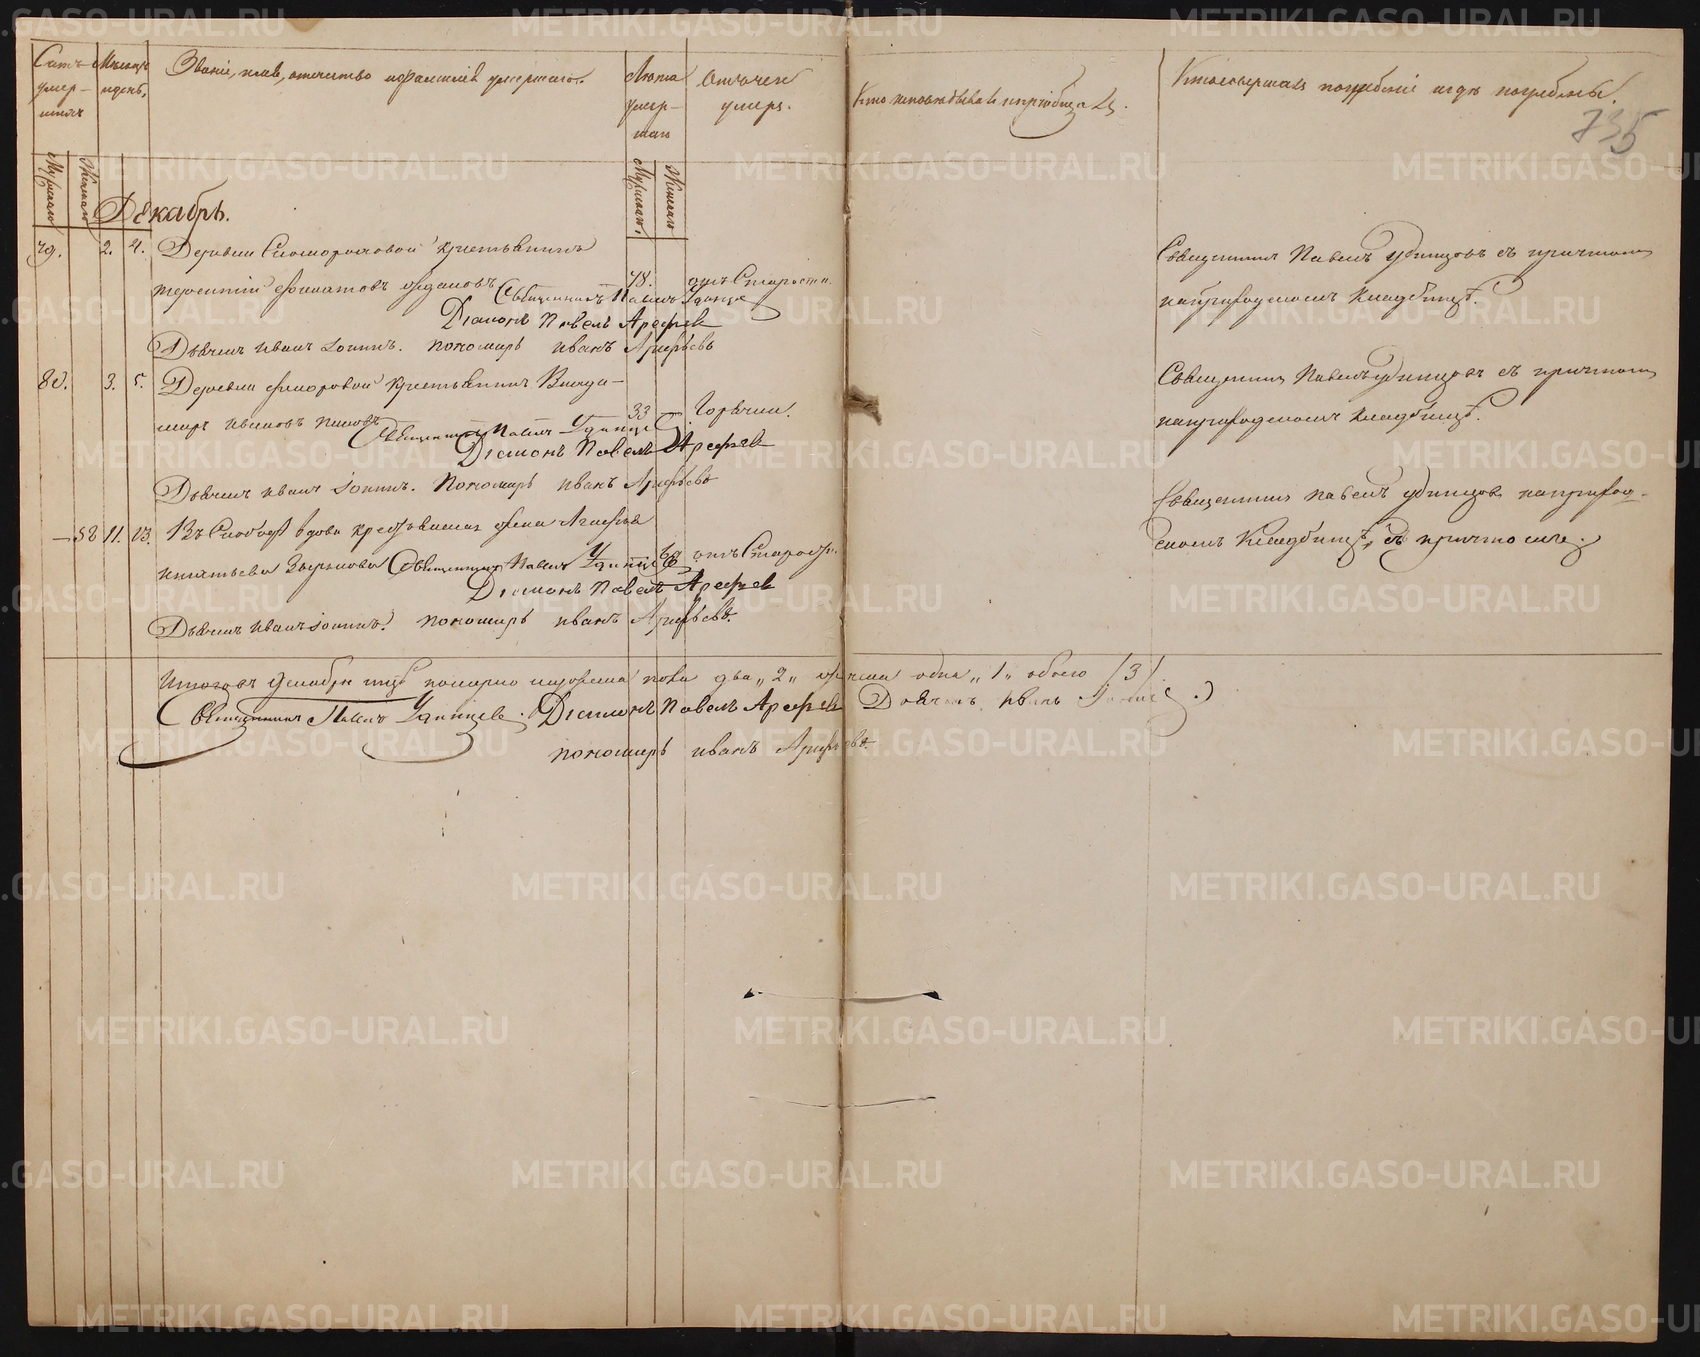 Счетъ умер-
шихъ
Мѣсяцъ и день.
Званіе, имя, отчество и фамилія умершаго.
Лѣта умер-
шаго
Отъ чего умеръ.
Кто исповѣдывалъ и пріобщалъ.
Кто совершалъ погребеніе и гдѣ погребены.
735
Мужескаго
Женскаго
Мужескаго
Женскаго
Декабрь.
79. 2. 4. Деревни крестьянинъ
48. отъ Старости
Священникъ Павелъ Удинцевъ
Діаконъ Павелъ Арефьев
Дьячекъ Иванъ Пономарь Иванъ Арефьевъ
Священник Павелъ Удинцовъ съ причтомъ
на приходскомъ кладбищѣ.
80. 3. 5. Деревни крестьянинъ Влади-
миръ Ивановъ 33 Горячки.
Священникъ Павелъ Удинцев
Діаконъ Павелъ Арефьев
Дьячекъ Иванъ Пономарь Иванъ Арефьевъ
Священник Павелъ Удинцовъ съ причтомъ
на приходскомъ кладбищѣ.
58 11. 13. Въ Слободѣ вдова крестьянская
Зырянова Священникъ Павелъ Удинцев отъ Старости.
Діаконъ Павелъ Арефьев
Дьячекъ Иванъ Пономарь Иванъ Арефьевъ.
Священник Павелъ Удинцовъ на приход-
скомъ кладбищѣ, съ причтомъ
Итого въ Декабрѣ м-цѣ померло мужеска пола два „2„ женска одна „1„ обоего /3/
Священникъ Павелъ Удинцев. Діаконъ Павелъ Арефьев Дьячекъ Иванъ
Пономарь Иванъ Арефьевъ
METRIKI.GASO-URAL.RU